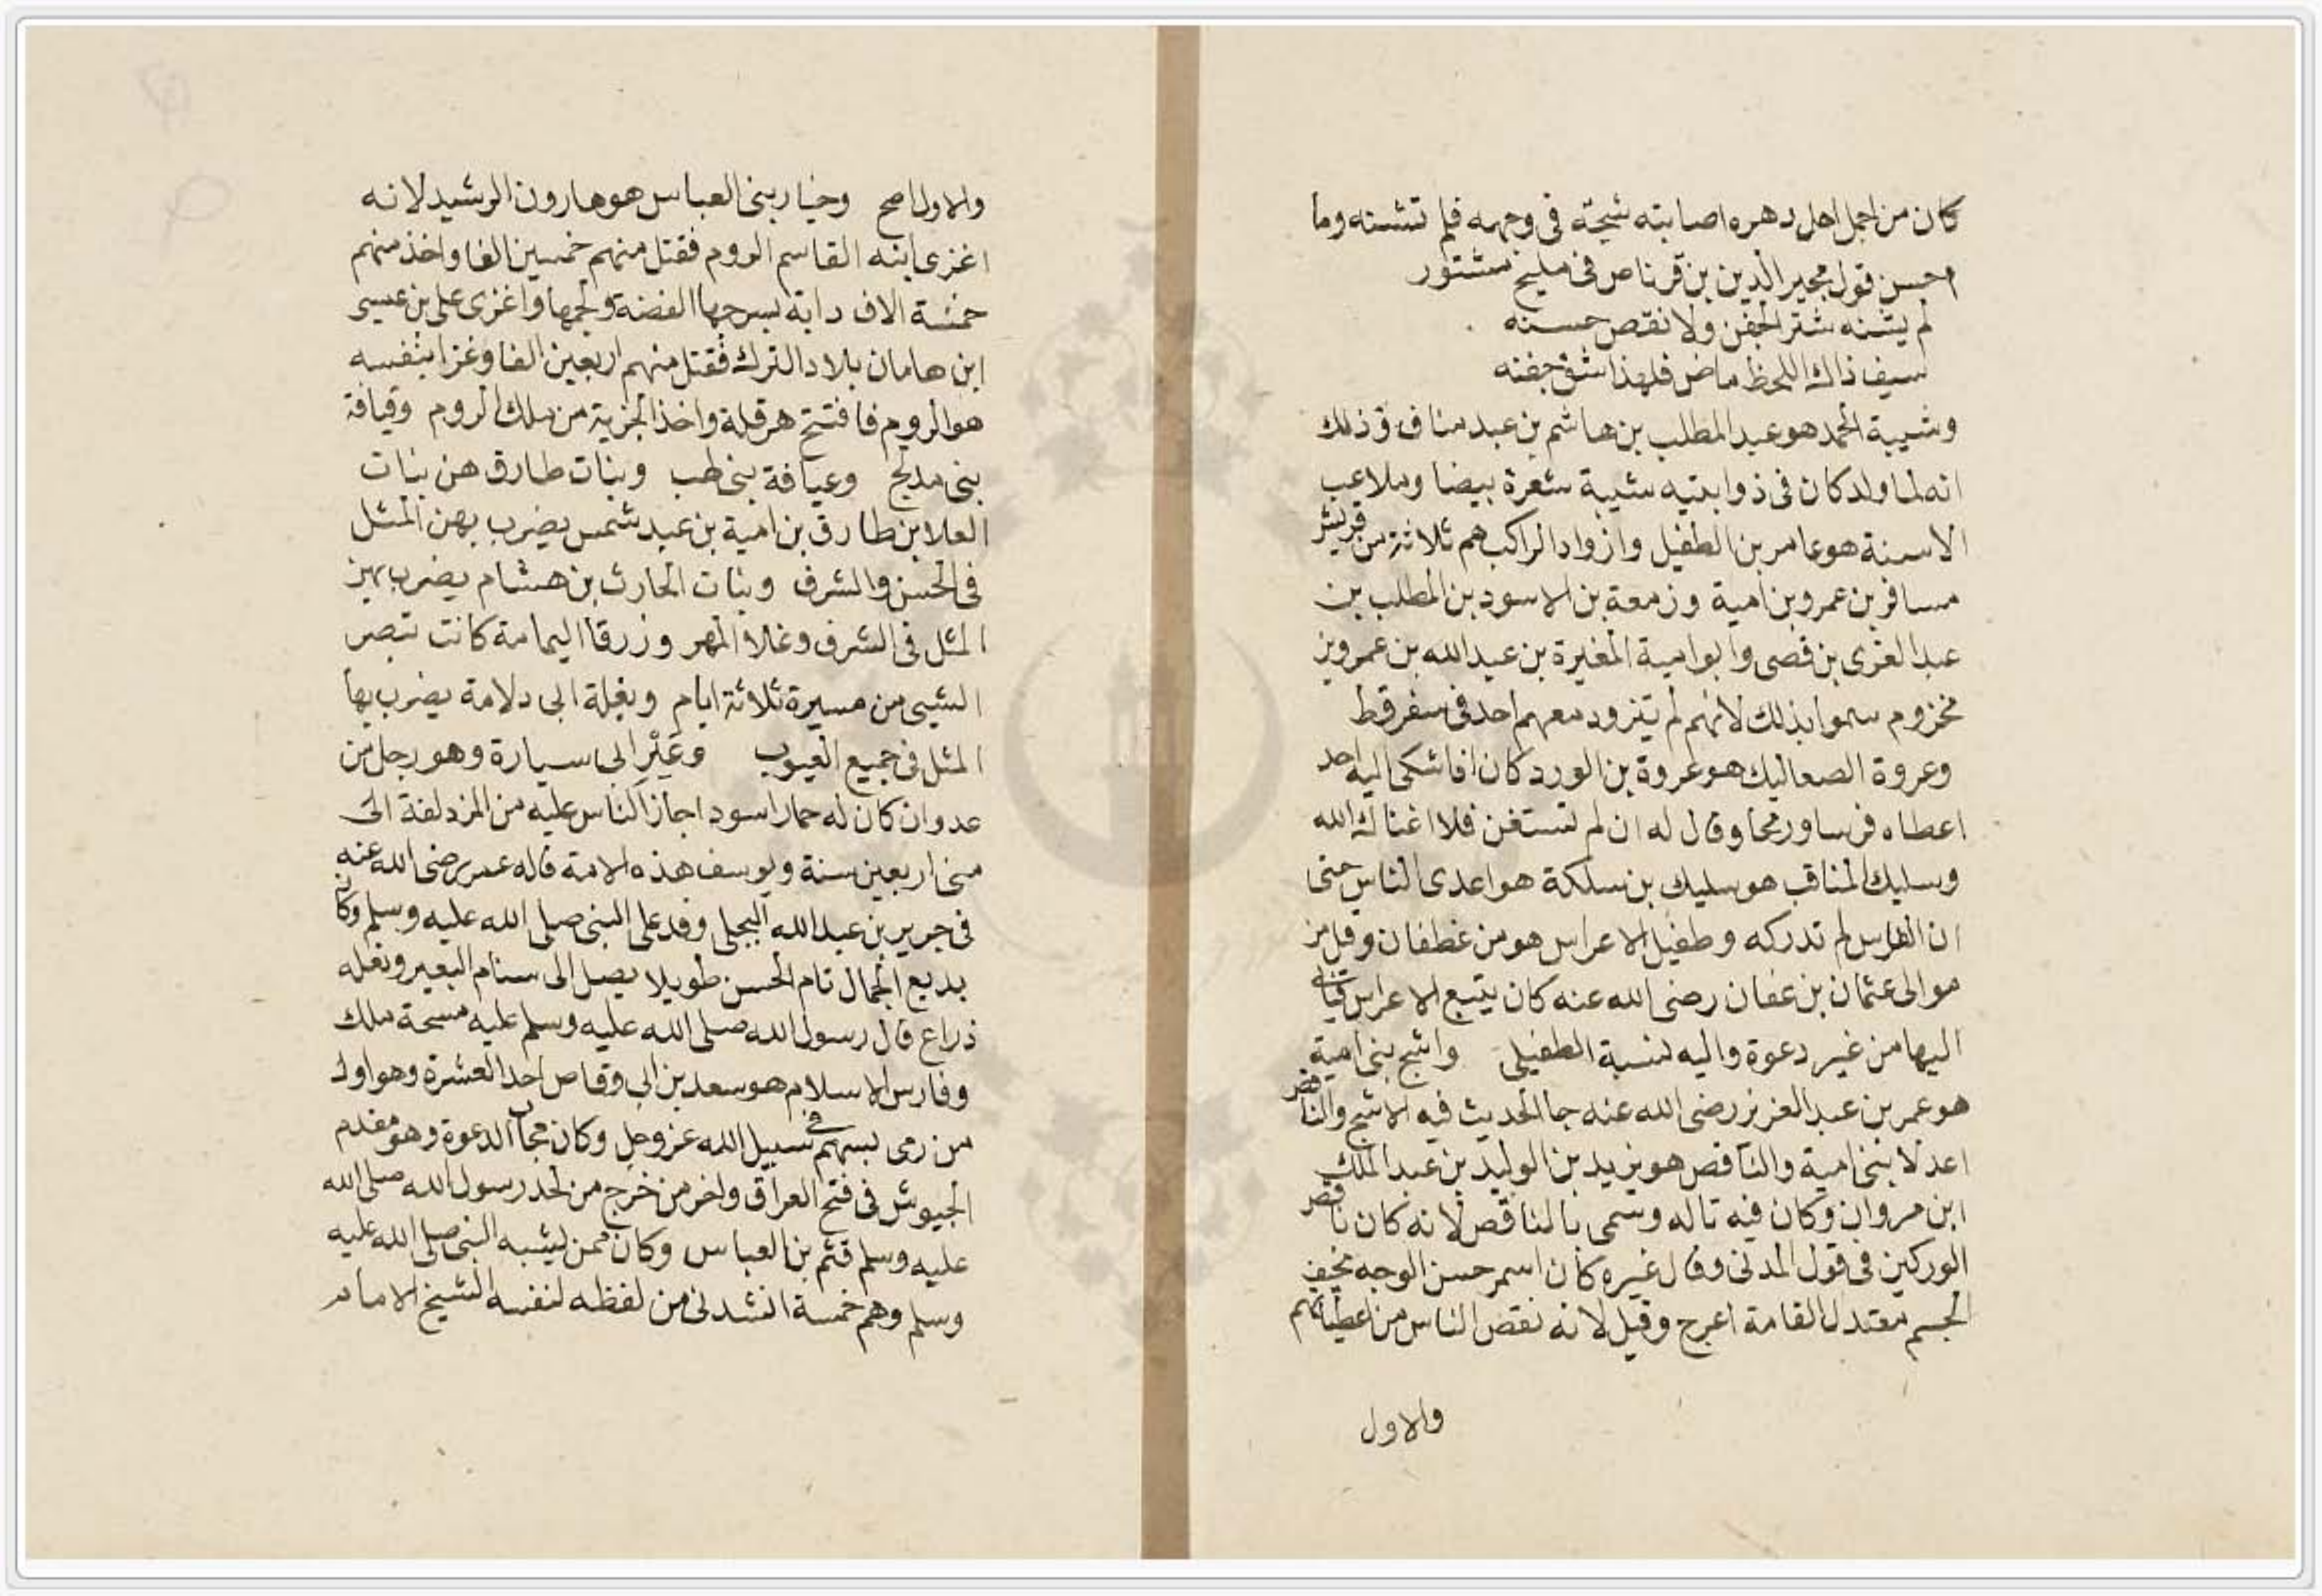 كان من اجمل اهل دهره اصابته شجة فى وجهه فلم تشنه وما
احسن قول مجير الدين بن قرناص فى مليح مشتور
لم يشنه شتر الجفن ولا نقص حسنه
سيف ذاك اللحظ ماض فلهذا شق جفنه
وشيبة الحمد هو عبد المطلب بن هاشم بن عبد مناف وذلك
انه لما ولد كان فى ذوابتيه شيبة شعرة بيضا وملاعب
الاسنة هو عامر بن الطفيل وازواد الراكب هم ثلاثة من قريش
مسافر بن عمرو بن امية وزمعة بن الاسود بن المطلب بن
عبد العزى بن قصى وابو امية المغيرة بن عبد الله بن عمرو بن
مخزوم سموا بذلك لانهم لم يتزود معهم احد فى سفر قط
وعروة الصعاليك هو عروة بن الورد كان اذا شكى اليه احد
اعطاه فرسا ورمحا وقال له ان لم تستغن فلا اغناك الله
وسليك المناقب هو سليك بن سلكة هو اعدى الناس حتى
ان الفرس لم تدركه وطفيل الاعراس هو من غطفان وقيل من
موالى عثمان بن عفان رضى الله عنه كان يتبع الاعراس فياتى
اليها من غير دعوة واليه نسبة الطفيلى واشج بنى امية
هو عمر بن عبد العزيز رضى الله عنه جا الحديث فيه الاشج والناقص
اعدلا بنى امية والناقص هو يزيد بن الوليد بن عبد الملك
ابن مروان وكان فيه تاله وسمى بالناقص لانه كان ناقص
الوركين فى قول المدنى وقال غيره كان اسمر حسن الوجه نحيف
الجسم معتدل القامة اعرج وقيل لانه نقص الناس من اعطياتهم
والاول
والاول اصح وخيار بنى العباس هو هارون الرشيد لانه
اغزى ابنه القاسم الروم فقتل منهم خمسين الفا واخذ منهم
خمسة الاف دابة بسرجها الفضة ولجمها واغزى على بن عيسى
ابن هامان بلاد الترك فقتل منهم اربعين الفا وغزا بنفسه
هو الروم فافتتح هرقلة واخذ الجزية من ملك الروم وقيافة
بنى مدلج وعيافة بنى لهب وبنات طارق هن بنات
العلا بن طارق بن امية بن عبد شمس يضرب بهن المثل
فى الحسن والشرف وبنات الحارث بن هشام يضرب بهن
المثل فى الشرف وغلاء المهر وزرقا اليمامة كانت تبصر
الشيى من مسيرة ثلاثة ايام وبغلة ابى دلامة يضرب بها
المثل فى جميع العيوب وعَيْر ابى سيارة وهو رجل من
عدوان كان له حمار اسود اجاز الناس عليه من المزدلفة الى
منى اربعين سنة ويوسف هذه الامة قاله عمر رضى الله عنه
فى جرير بن عبد الله البجلى وفد على النبى صلى الله عليه وسلم وكان
بديع الجمال تام الحسن طويلا يصل الى سنام البعير ونعله
ذراع قال رسول الله صلى الله عليه وسلم عليه مسحة ملك
وفارس الاسلام هو سعد بن ابى وقاص احد العشرة وهو اول
من رمى بسهم فى سبيل الله عز وجل وكان مجاب الدعوة وهو مقدم
الجيوش فى فتح العراق واخر من خرج من لحد رسول الله صلى الله
عليه وسلم قثم بن العباس وكان ممن يشبه النبى صلى الله عليه
وسلم وهم خمسة انشدنى من لفظه لنفسه الشيخ الامام